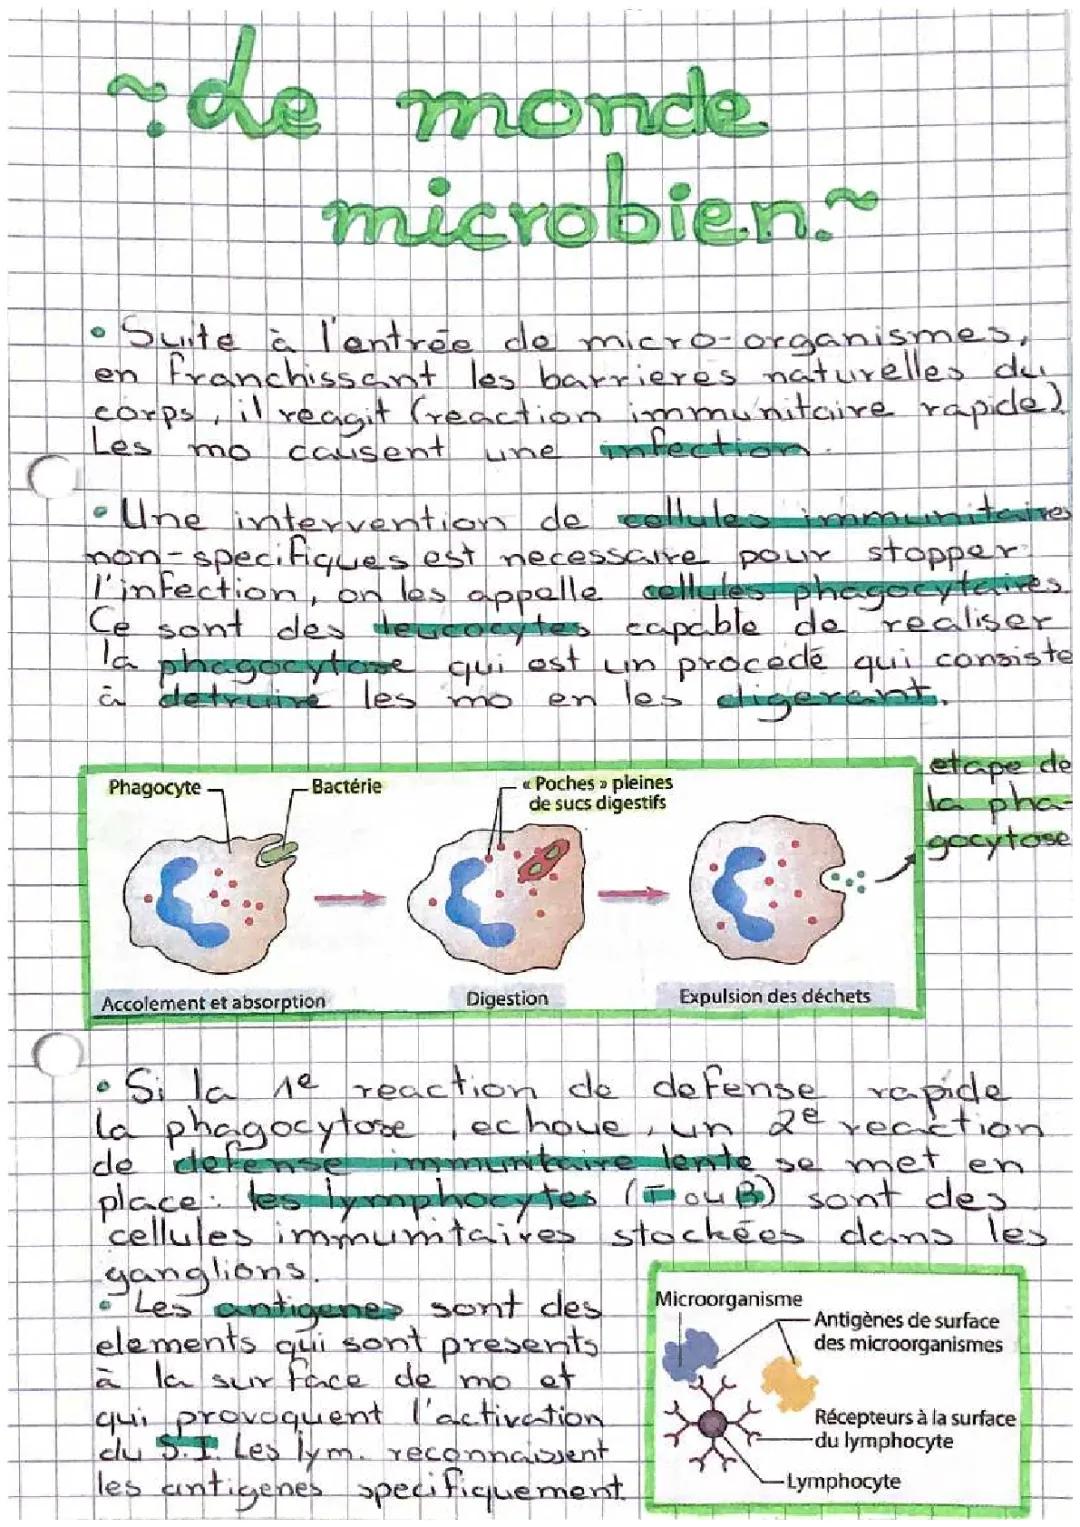 ~ Le monde
microbien. ~
• Suite à l'entrée de micro-organismes,
en franchissant les barrieres naturelles du
corps, il reagit (reaction immunitaire rapide)
Les mo causent une infection.
• Une intervention de cellules immunitaires
non-specifiques est necessaire pour stopper
l'infection, on les appelle cellules phagocytaires.
Ce sont des leucocytes capable de realiser
la phagocytose qui est un procedé qui consiste
à detruire les mo en les digerant.
etape de
la pha-
gocytose
Phagocyte
Bactérie
« Poches » pleines
de sucs digestifs
Accolement et absorption
Digestion
Expulsion des déchets
• Si la 1e reaction de defense rapide
la phagocytose, echoue, un 2e reaction
de defense immunitaire lente se met en
place: les lymphocytes (T ou B) sont des
cellules immunitaires stockées dans les
ganglions.
• Les antigenes sont des
elements qui sont presents
à la surface de mo et
qui provoquent l'activation
du S.I. Les lym. reconnaissent
les antigenes specifiquement.
Microorganisme
Antigènes de surface
des microorganismes
Récepteurs à la surface
du lymphocyte
Lymphocyte